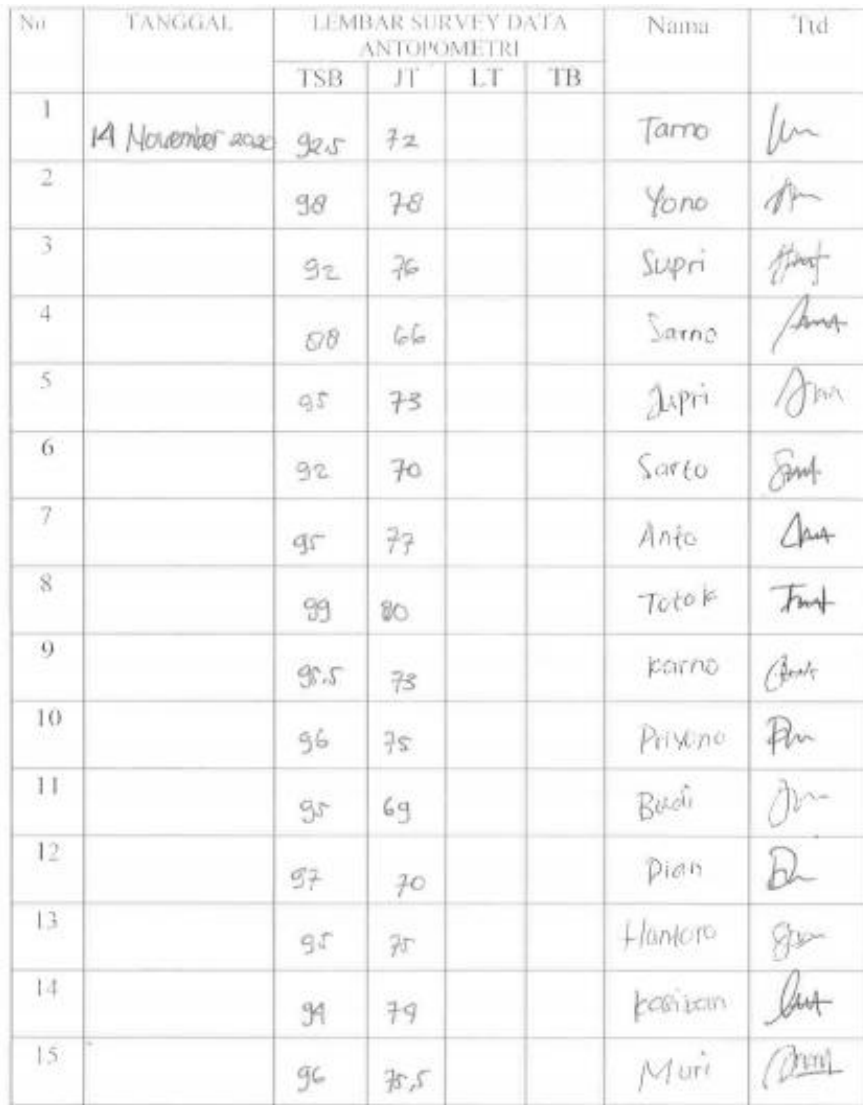 No TANGGAL LEMBAR SURVEY DATA Nama Ttd
ANTOPOMETRI
TSB JT LT TB
1 14 November 2020 92.5 72 Tarno
2 98 78 Yono
3 92 76 Supri
4 88 66 Sarno
5 95 73 Jupri
6 92 70 Sarto
7 95 77 Anto
8 99 80 Totok
9 95.5 73 karno
10 96 75 Priyono
11 95 69 Budi
12 97 70 Dian
13 95 75 Hantoro
14 94 79 kasiban
15 96 75,5 Muri